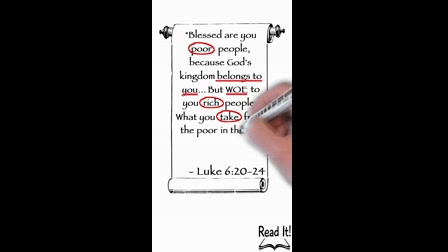 "Blessed are you
poor people,
because God's
kingdom belongs to
you... But WOE to
you rich people
What you take
the poor in
- Luke 6:20-24
Read It!